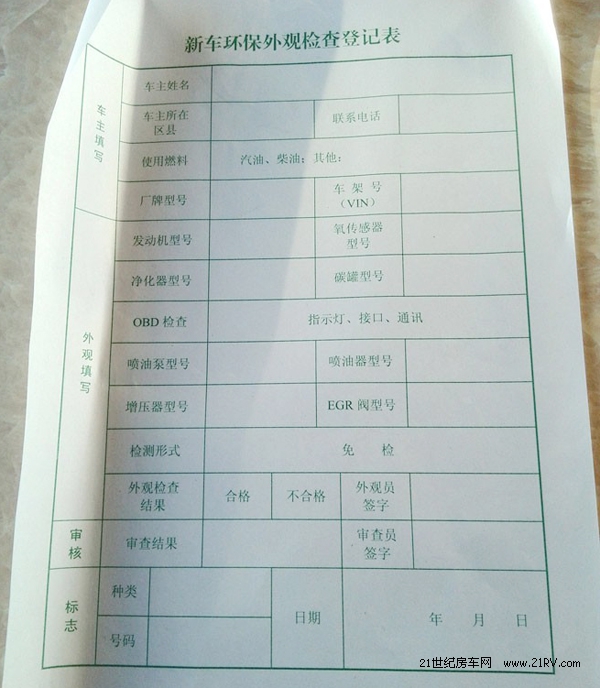 新车环保外观检查登记表
车主填写
车主姓名
车主所在
区县
联系电话
使用燃料
汽油、柴油；其他：
外观填写
厂牌型号
车 架 号
（VIN）
发动机型号
氧传感器
型号
净化器型号
碳罐型号
OBD 检查
指示灯、接口、通讯
喷油泵型号
喷油器型号
增压器型号
EGR 阀型号
检测形式
免 检
外观检查
结果
合格
不合格
外观员
签字
审核
审查结果
审查员
签字
标志
种类
号码
日期
年 月 日
21世纪房车网 www.21RV.com